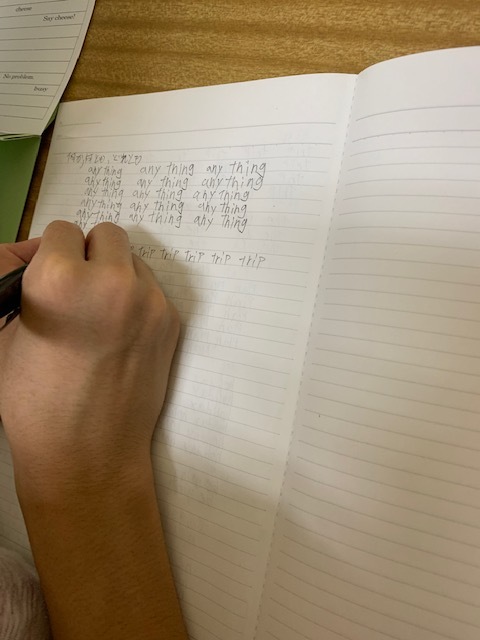 cheese
Say cheese!
No problem.
busy
any thing any thing any thing
any thing any thing any thing
any thing any thing any thing
any thing any thing any thing
any thing any thing any thing
trip trip trip trip trip